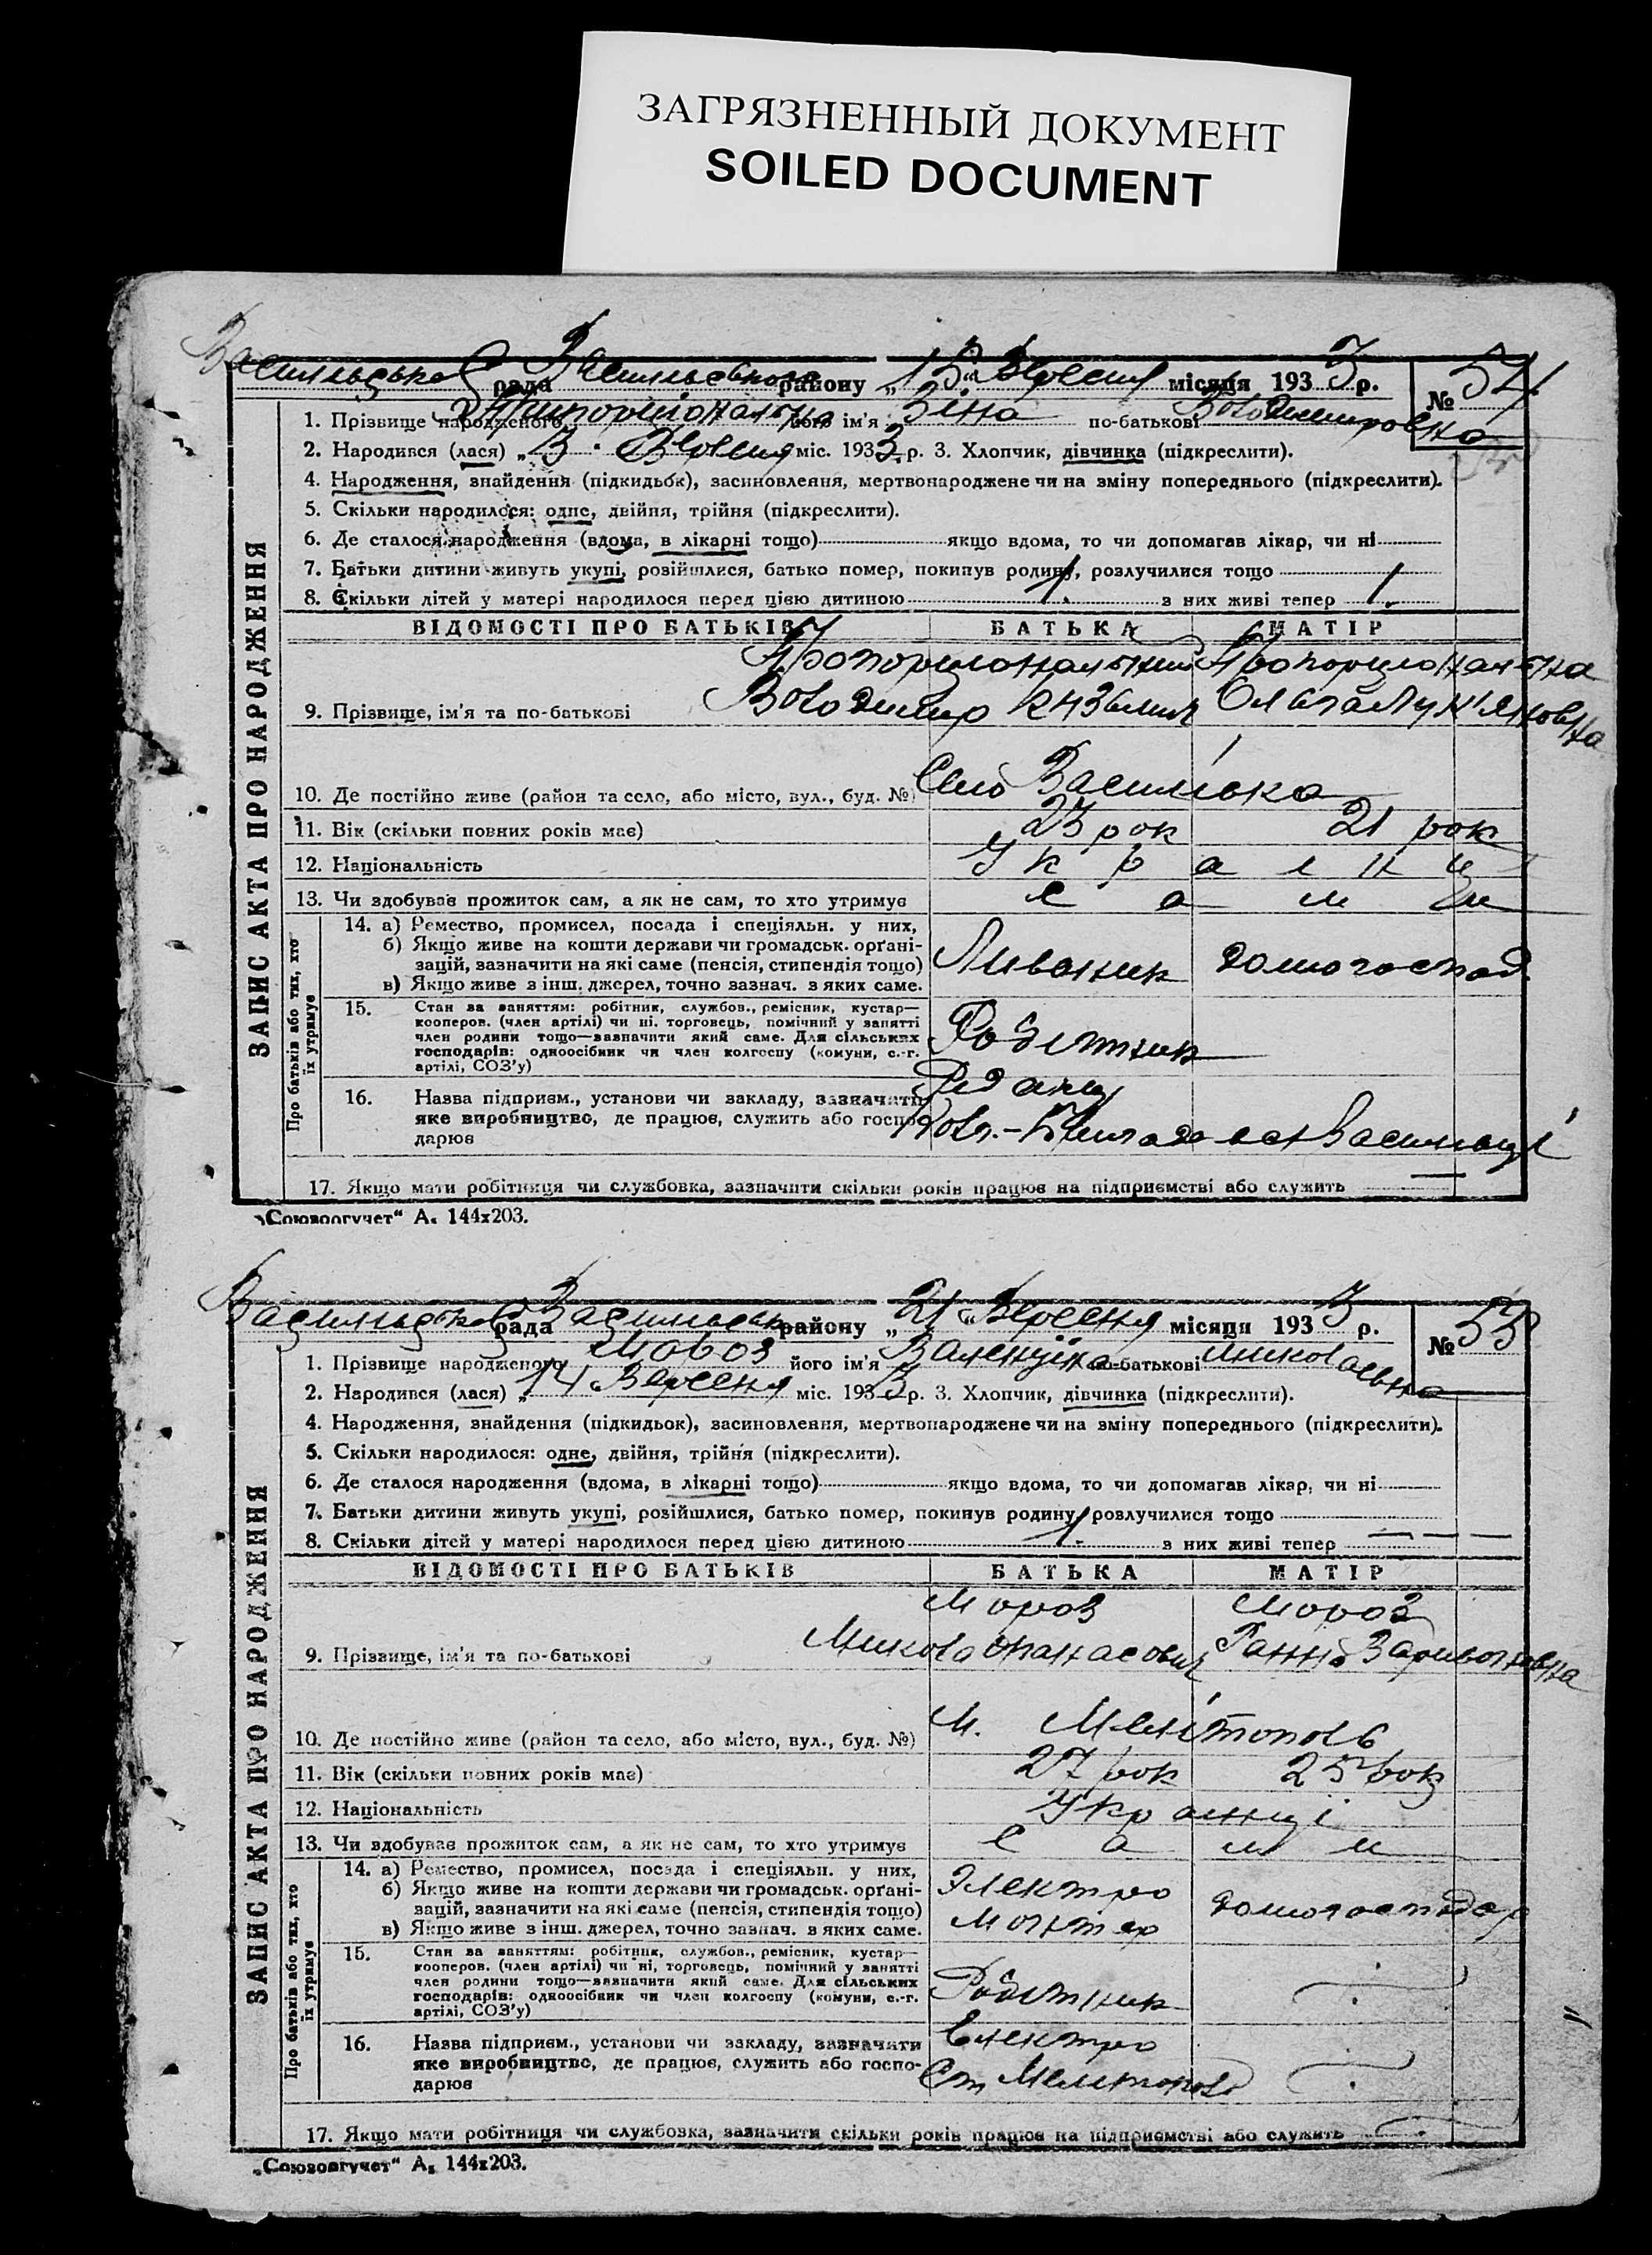 ЗАГРЯЗНЕННЫЙ ДОКУМЕНТ
SOILED DOCUMENT
рада району „15“ Вересня місяця 1933 р. № 54
1. Прізвище народженого його ім'я Зіна по-батькові Володимировна
2. Народився (лася) „ “ міс. 1933 р. 3. Хлопчик, дівчинка (підкреслити).
4. Народження, знайдення (підкидьок), засиновлення, мертвонароджене чи на зміну попереднього (підкреслити).
5. Скільки народилося: одне, двійня, трійня (підкреслити).
6. Де сталося народження (вдома, в лікарні тощо) якщо вдома, то чи допомагав лікар, чи ні
7. Батьки дитини живуть укупі, розійшлися, батько помер, покинув родину, розлучилися тощо
8. Скільки дітей у матері народилося перед цією дитиною 1. з них живі тепер 1.
ВІДОМОСТІ ПРО БАТЬКІВ БАТЬКА МАТІР
Пропорціональний Пропорціональна
9. Прізвище, ім'я та по-батькові Володимир Кузьмич Ольга Лук'яновна
10. Де постійно живе (район та село, або місто, вул., буд. №) Село Василівка
11. Вік (скільки повних років має) 23 рок 21 рок
12. Національність Украінці
13. Чи здобував прожиток сам, а як не сам, то хто утримує сами
14. а) Ремество, промисел, посада і спеціяльн. у них,
б) Якщо живе на кошти держави чи громадськ. орґані-
зацій, зазначити на які саме (пенсія, стипендія тощо) Ливарник домогоспод
в) Якщо живе з інш. джерел, точно зазнач. з яких саме.
15. Стан за заняттям: робітник, службов., ремісник, кустар—
кооперов. (член артілі) чи ні, торговець, помічний у занятті
член родини тощо—зазначити який саме. Для сільських
господарів: одноосібник чи член колгоспу (комуни, с.-г.
артілі, СОЗ'у) Робітник
16. Назва підприєм., установи чи закладу, зазначати
яке виробництво, де працює, служить або госпо-
дарює
17. Якщо мати робітниця чи службовка, зазначити скільки років працює на підприємстві або служить —
„Союзоргучет“ А₅ 144х203.
ЗАПИС АКТА ПРО НАРОДЖЕННЯ
Про батьків або тих, хто
їх утримує
рада району „21“ Вересня місяця 1933 р. № 55
1. Прізвище народженого Мороз його ім'я Валентіна по-батькові Миколаевна
2. Народився (лася) „14 Вересня міс. 1933 р. 3. Хлопчик, дівчинка (підкреслити).
4. Народження, знайдення (підкидьок), засиновлення, мертвонароджене чи на зміну попереднього (підкреслити).
5. Скільки народилося: одне, двійня, трійня (підкреслити).
6. Де сталося народження (вдома, в лікарні тощо) якщо вдома, то чи допомагав лікар, чи ні
7. Батьки дитини живуть укупі, розійшлися, батько помер, покинув родину, розлучилися тощо
8. Скільки дітей у матері народилося перед цією дитиною 1. з них живі тепер —
ВІДОМОСТІ ПРО БАТЬКІВ БАТЬКА МАТІР
Мороз Мороз
9. Прізвище, ім'я та по-батькові Микола Опанасович Ганна
10. Де постійно живе (район та село, або місто, вул., буд. №) М. Мелітополь
11. Вік (скільки повних років має) 27 рок 25 рок
12. Національність Украинці
13. Чи здобував прожиток сам, а як не сам, то хто утримує сами
14. а) Ремество, промисел, посада і спеціяльн. у них,
б) Якщо живе на кошти держави чи громадськ. орґані- Электро
зацій, зазначити на які саме (пенсія, стипендія тощо) домогосподар
в) Якщо живе з інш. джерел, точно зазнач. з яких саме. Монтер
15. Стан за заняттям: робітник, службов., ремісник, кустар—
кооперов. (член артілі) чи ні, торговець, помічний у занятті
член родини тощо—зазначити який саме. Для сільських
господарів: одноосібник чи член колгоспу (комуни, с.-г.
артілі, СОЗ'у) Робітник
16. Назва підприєм., установи чи закладу, зазначати Електро
яке виробництво, де працює, служить або госпо-
дарює Ст Мелитополь
17. Якщо мати робітниця чи службовка, зазначити скільки років працює на підприємстві або служить
„Союзоргучет“ А₅ 144х203.
ЗАПИС АКТА ПРО НАРОДЖЕННЯ
Про батьків або тих, хто
їх утримує